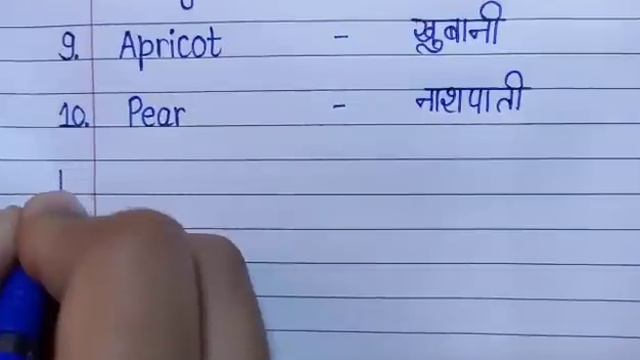 9. Apricot - खूबानी
10. Pear - नाशपाती